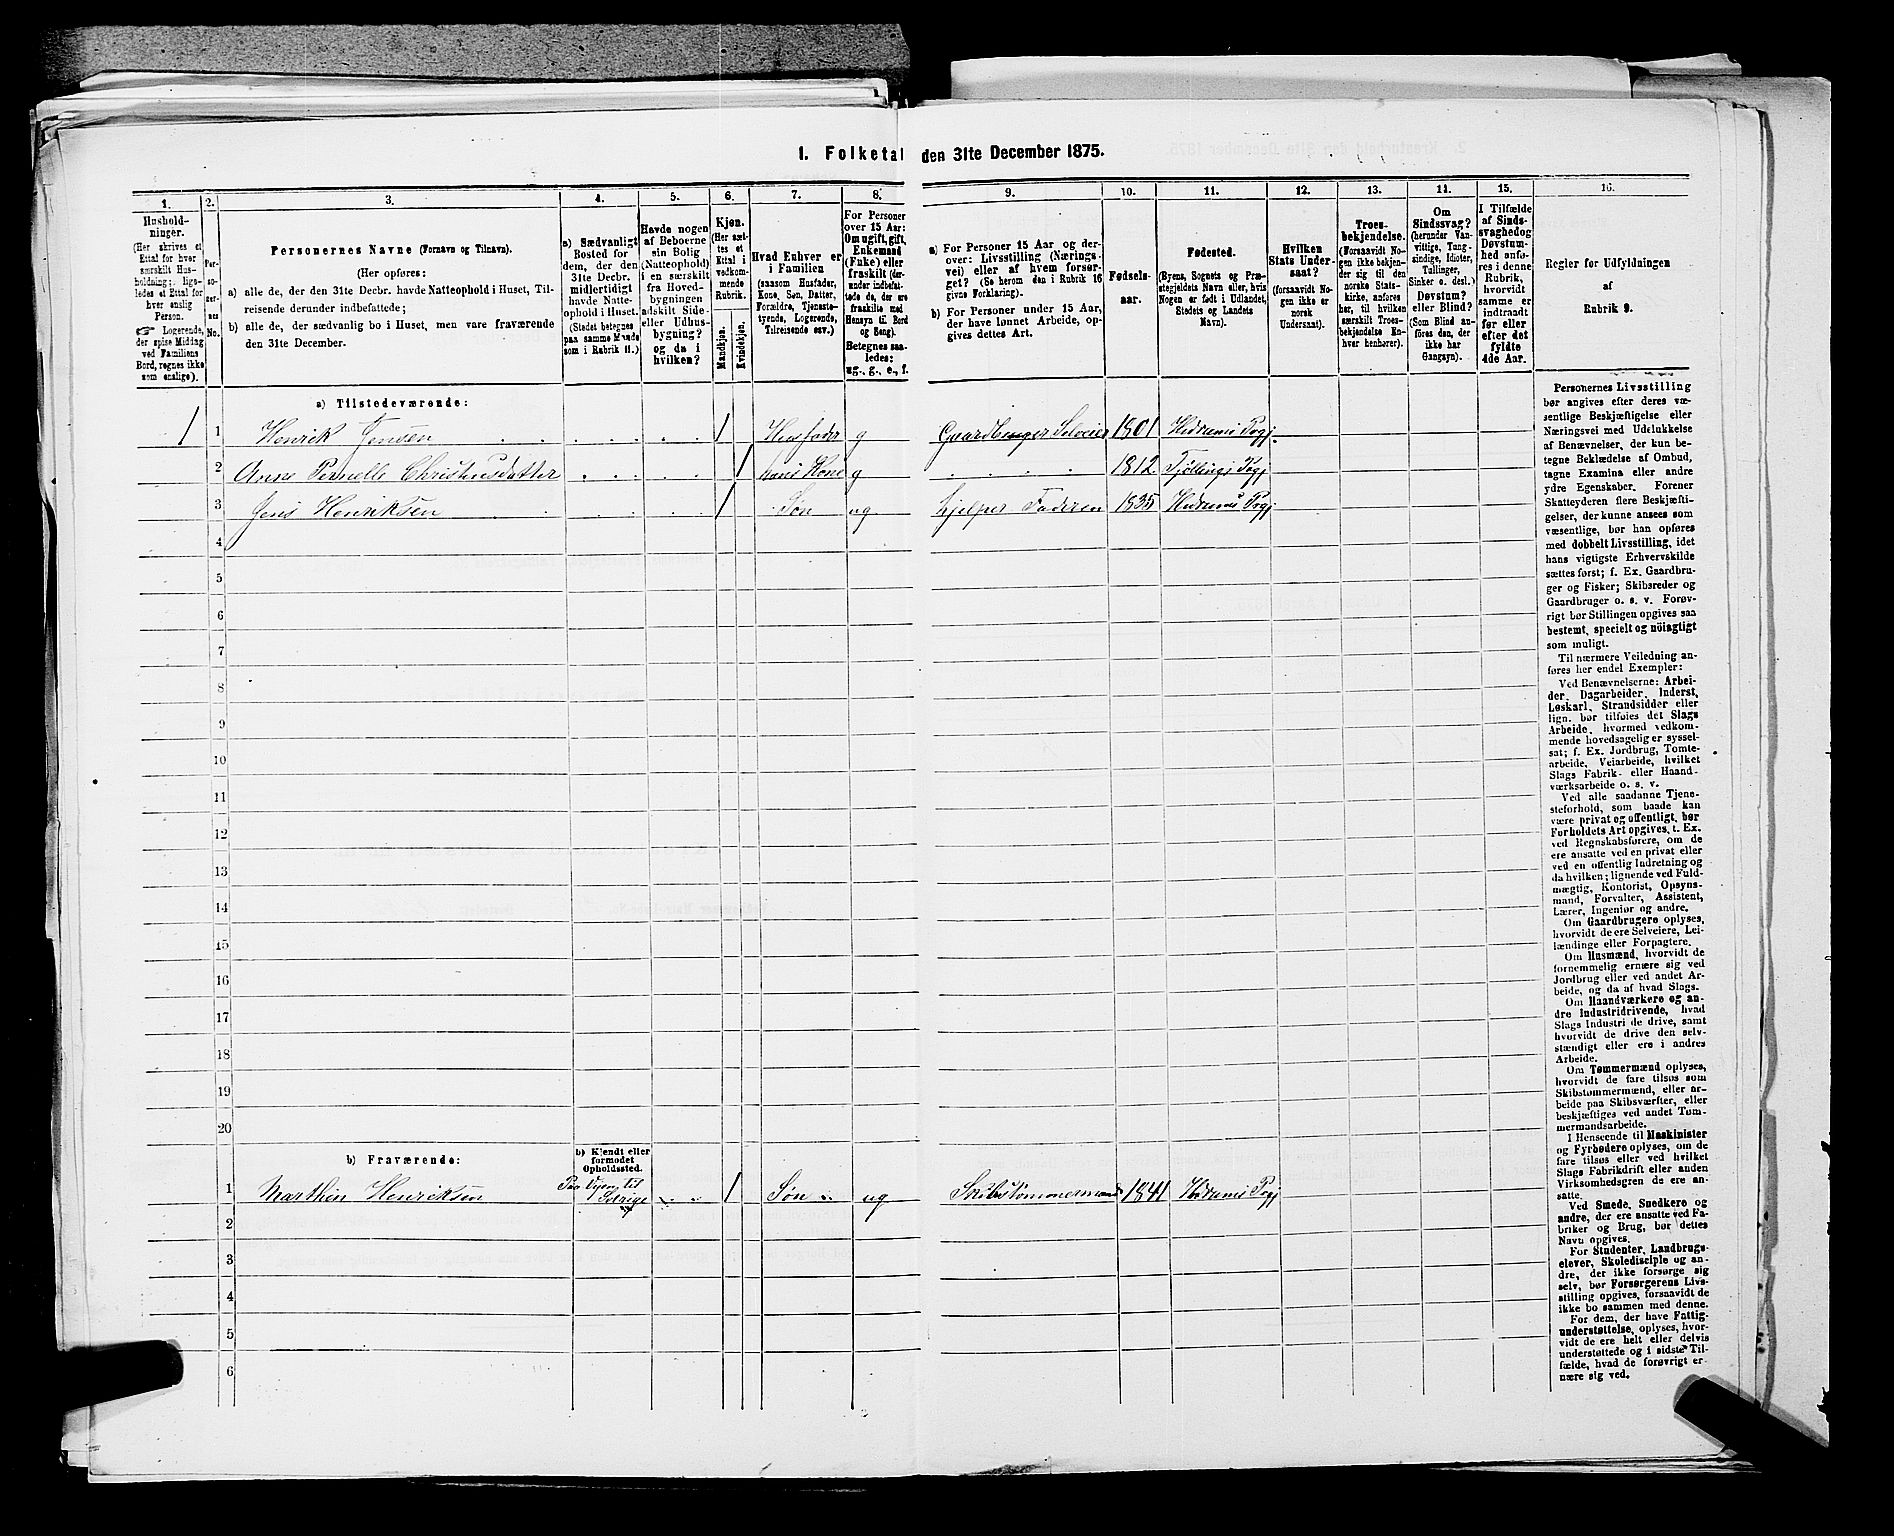 1. Folketal den 31te December 1875.
1.
Hushold-
ninger.
(Her skrives et
Ettal for hver
særskilt Hus-
holdning; lige-
ledes et Ettal for
hver enslig
Person.
☞ Logerende,
der spise Middag
ved Familiens
Bord, regnes ikke
som enslige).
2.
Per-
so-
ner-
nes
No.
3.
Personernes Navne (Fornavn og Tilnavn).
(Her opføres:
a) alle de, der den 31te Decbr. havde Natteophold i Huset, Til-
reisende derunder indbefattede;
b) alle de, der sædvanlig bo i Huset, men vare fraværende
den 31te December.
4.
a) Sædvanligt
Bosted for
dem, der den
31te Decbr.
midlertidigt
havde Natte-
ophold i Huset.
(Stedet betegnes
paa samme Maade
som i Rubrik 11.)
5.
Havde nogen
af Beboerne
sin Bolig
(Natteophold)
i en særskilt
fra Hoved-
bygningen
adskilt Side-
eller Udhus-
bygning?
og da i
hvilken?
6.
Kjøn.
(Her sæt-
tes et
Ettal i
vedkom-
mende
Rubrik.
Mandkjøn.
Kvindekjøn.
7.
Hvad Enhver er
i Familien
(saasom Husfader,
Kone, Søn, Datter,
Forældre, Tjeneste-
tyende, Logerende,
Tilreisende osv.)
8.
For Personer
over 15 Aar:
Om ugift, gift,
Enkemand
(Enke) eller
fraskilt (der-
under indbefat-
tede de, der ere
fraskilte med
Hensyn til Bord
og Seng).
Betegnes saa-
ledes:
ug., g., e., f.
9.
a) For Personer 15 Aar og der-
over: Livsstilling (Nærings-
vei) eller af hvem forsør-
get? (Se herom den i Rubrik 16
givne Forklaring).
b) For Personer under 15 Aar,
der have lønnet Arbeide, op-
gives dettes Art.
10.
Fødsels-
aar.
11.
Fødested.
(Byens, Sognets og Præ-
stegjeldets Navn eller, hvis
Nogen er født i Udlandet,
Stedets og Landets
Navn).
12.
Hvilken
Stats Under-
saat?
(forsaavidt No-
gen ikke er
norsk
Undersaat).
13.
Troes-
bekjendelse.
(Forsaavidt No-
gen ikke bekjen-
der sig til den
norske Stats-
kirke, anføres
her, til hvilken
særskilt Troes-
bekjendelse En-
hver henhører).
14.
Om
Sindssvag?
(herunder Van-
vittige, Tung-
sindige, Idioter,
Tullinger,
Sinker o. desl.)
Døvstum?
eller Blind?
(Som Blind an-
føres den, der
ikke har
Gangsyn).
15.
I Tilfælde
af Sinds-
svaghed og
Døvstum-
hed anfø-
res i denne
Rubrik,
hvorvidt
samme er
indtraadt
før eller
efter det
fyldte
4de Aar.
16.
Regler for Udfyldningen
af
Rubrik 9.
a) Tilstedeværende:
1 1 Henrik Jensen 1 Husfader g Gaardbruger Selveier 1801 Hedrums Prgj.
2 Anne Pernelle Christensdatter 1 hans Kone g 1812 Tjøllings Prgj
3 Jens Henriksen 1 Søn ug hjelper Faderen 1835 Hedrums Prgj
4
5
6
7
8
9
10
11
12
13
14
15
16
17
18
19
20
b) Fraværende:
b) Kjendt eller
formodet
Opholdssted.
1 Marthin Henriksen Paa Reise til Sverige 1 Søn ug Skibstømmermand 1841 Hedrums Prgj
2
3
4
5
6
Personernes Livsstilling
bør angives efter deres væ-
sentlige Beskjæftigelse eller
Næringsvei med Udelukkelse
af Benævnelser, der kun be-
tegne Beklædelse af Ombud,
tagne Examina eller andre
ydre Egenskaber. Forener
Skatteyderen flere Beskjæfti-
gelser, der kunne ansees som
væsentlige, bør han opføres
med dobbelt Livsstilling, idet
hans vigtigste Erhvervskilde
sættes først; f. Ex. Gaardbru-
ger og Fisker; Skibsreder og
Gaardbruger o. s. v. Forøv-
rigt bør Stillingen opgives saa
bestemt, specielt og nöiagtigt
som muligt.
Til nærmere Veiledning an-
føres her endel Exempler:
Ved Benævnelserne: Arbei-
der, Dagarbeider, Inderst,
Løskarl, Strandsidder eller
lign. bør tilføies det Slags
Arbeide, hvormed vedkom-
mende hovedsagelig er syssel-
sat; f. Ex. Jordbrug, Tomte-
arbeide, Veiarbeide, hvilket
Slags Fabrik- eller Haand-
værksarbeide o. s. v.
Ved alle saadanne Tjene-
steforhold, som baade kan
være privat og offentligt, bør
Forholdets Art opgives, t. Ex.
ved Regnskabsførere, om de
ere ansatte ved en privat eller
ved en offentlig Indretning og
da hvilken; lignende ved Fuld-
mægtig, Kontorist, Opsyns-
mand, Forvalter, Assistent,
Lærer, Ingeniør og andre.
Om Gaardbrugere oplyses,
hvorvidt de ere Selveiere, Lei-
lændinge eller Forpagtere.
Om Husmænd, hvorvidt de
fornemmelig ernære sig ved
Jordbrug eller ved andet Ar-
beide, og da af hvad Slags.
Om Haandværkere og an-
dre Industridrivende, hvad
Slags Industri de drive, samt
hvorvidt de drive den selv-
stændigt eller ere i andres
Arbeide.
Om Tømmermænd oplyses,
hvorvidt de fare tilsøs som
Skibstømmermænd, eller ar-
beide paa Skibsværfter, eller
beskjæftiges ved andet Tøm-
mermandsarbeide.
I Henseende til Maskinister
og Fyrbødere oplyses, om de
fare tilsøs eller ved hvilket
Slags Fabrikdrift eller anden
Virksomhedsgren de ere an-
satte.
Ved Smede, Snedkere og
andre, der ere ansatte ved Fa-
briker og Brug, bør dettes
Navn opgives.
For Studenter, Landbrugs-
elever, Skoledisciple og an-
dre, der ikke forsørge sig
selv, bør Forsørgerens Livs-
stilling opgives, forsaavidt de
ikke bo sammen med denne.
For dem, der have Fattig-
understøttelse, oplyses, hvor-
vidt de ere helt eller delvis
understøttede og i sidste Til-
fælde, hvad de forøvrigt er-
nære sig ved.